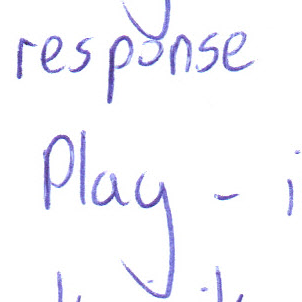 response
Play - i